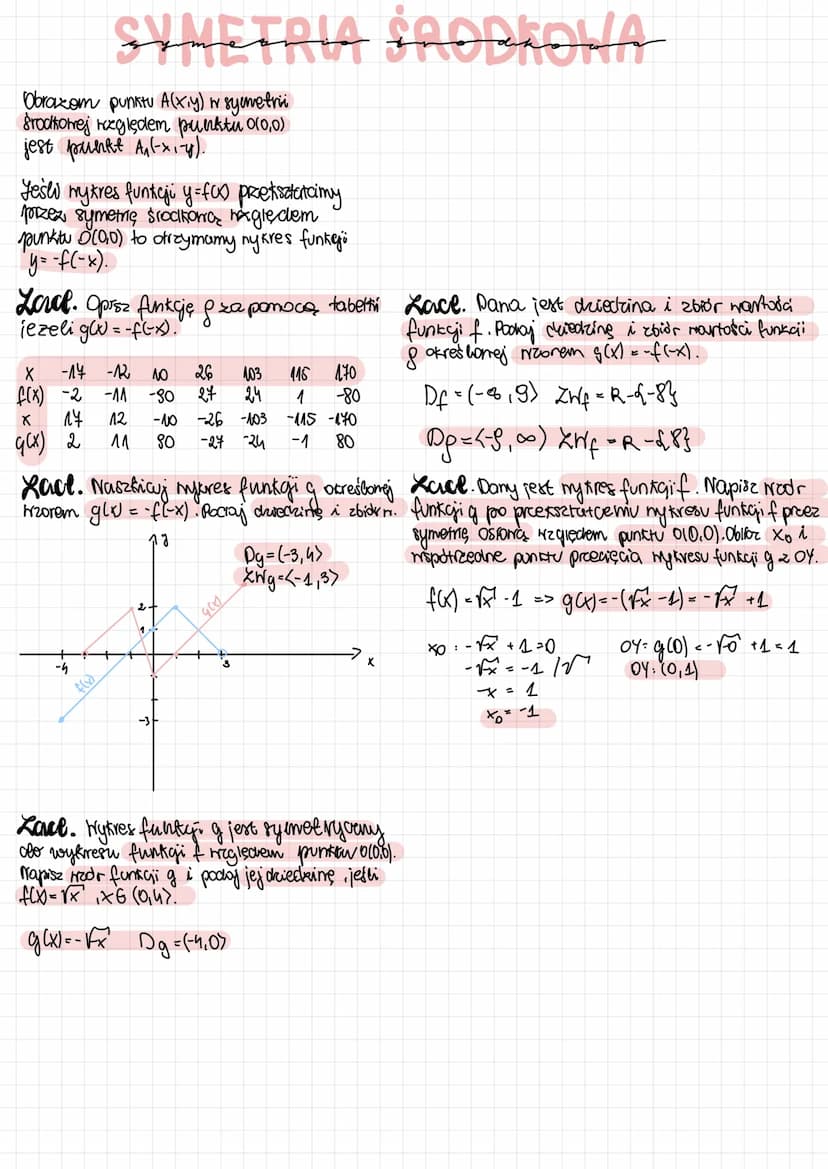 SYMETRIA ŚRODKOWA
symetria środkowa
Obrazem punktu A(x,y) w symetrii
środkowej względem punktu O(0,0)
jest punkt A₁(-x,-y).
Jeśli wykres funkcji y=f(x) przekształcimy
przez symetrię środkową względem
punktu O(0,0) to otrzymamy wykres funkcji
y=-f(-x).
Zad. Opisz funkcję g za pomocą tabelki
jeżeli g(x) = -f(-x).
x -14 -12 10 26 103 115 170
f(x) -2 -11 -80 27 24 1 -80
x 14 12 -10 -26 -103 -115 -170
g(x) 2 11 80 -27 -24 -1 80
Zad. Dana jest dziedzina i zbiór wartości
funkcji f. Podaj dziedzinę i zbiór wartości funkcji
g określonej wzorem g(x) = -f(-x).
Df = (-∞,9⟩ ZWf = R-{-8}
Dg = ⟨-9,∞) ZWf = R-{8}
Zad. Naszkicuj wykres funkcji g określonej
wzorem g(x) = -f(-x). Podaj dziedzinę i zbiór w.
y
Dg=(-3,4⟩
ZWg=⟨-1,3⟩
g(x)
2
1
-4
3
x
f(x)
-3
Zad. Dany jest wykres funkcji f. Napisz wzór
funkcji g po przekształceniu wykresu funkcji f przez
symetrię osiową względem punktu O(0,0). Oblicz x₀ i
współrzędne punktu przecięcia wykresu funkcji g z OY.
f(x) = √x - 1 => g(x) = -(√-x - 1) = -√-x + 1
x₀ : -√-x + 1 = 0
-√-x = -1 /√
-x = 1
x₀ = -1
OY: g(0) = -√-0 + 1 = 1
OY: (0,1)
Zad. Wykres funkcji g jest symetryczny
do wykresu funkcji f względem punktu O(0,0).
Napisz wzór funkcji g i podaj jej dziedzinę, jeśli
f(x) = √x , x∈(0,4⟩.
g(x) = -√-x Dg = (-4,0⟩